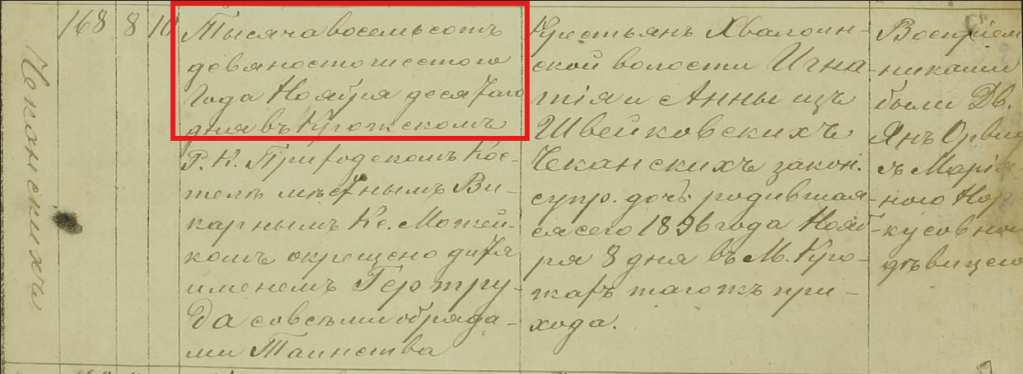 Чеканскихъ
168 8 10
Тысяча восемьсотъ
девяносто шестого
года Ноября десятого
дня въ Крожскомъ
Р. К. Приходскомъ Кос-
телѣ мѣстнымъ Ви-
карнымъ Кс. Можей-
комъ окрещено дитя
именемъ Гертру-
да совсѣми обряда-
ми Таинства
Крестьянъ Хвалоин-
ской волости Игна-
тія и Анны изъ
Швейковскихъ
Чеканскихъ закон.
супр. дочь родившая-
ся сего 1896 года Нояб-
ря 8 дня въ М. Кро-
жахъ тогожъ при-
хода.
Воспріем-
никами
были Дв.
Янъ
съ Маріа-
ною
дѣвицею